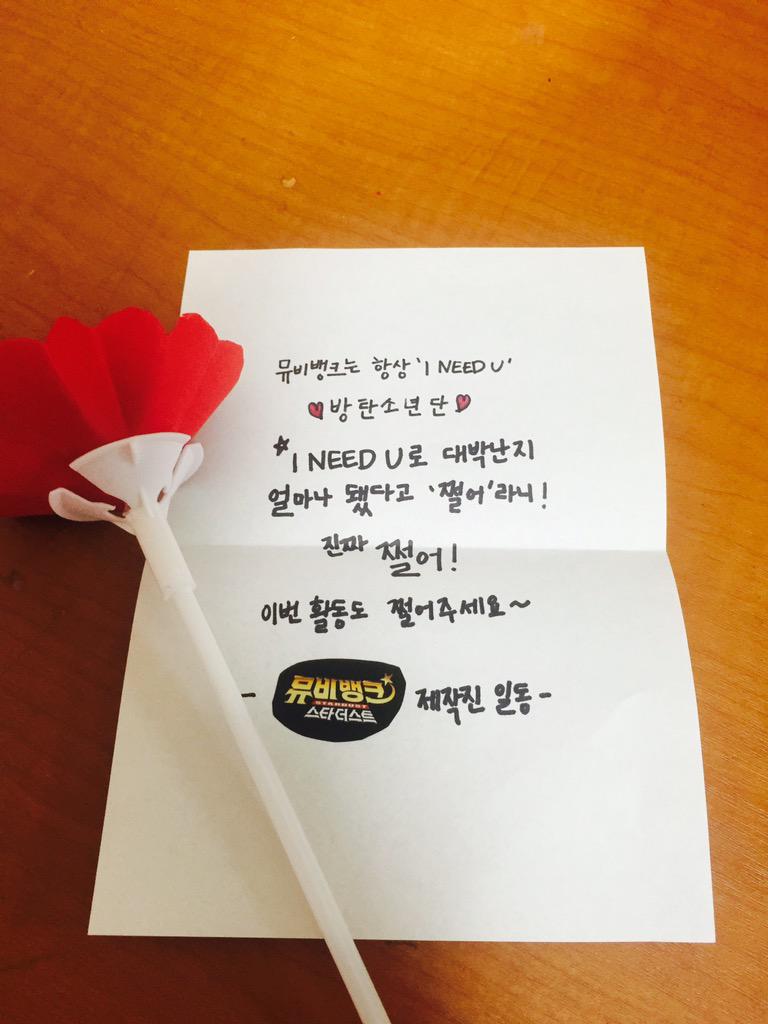 뮤비뱅크는 항상 'I NEED U'
방탄소년단
*I NEED U로 대박난지
얼마나 됐다고 '쩔어'라니!
진짜 쩔어!
이번 활동도 쩔어주세요~
- 뮤비뱅크 STARDUST 스타더스트 제작진 일동-